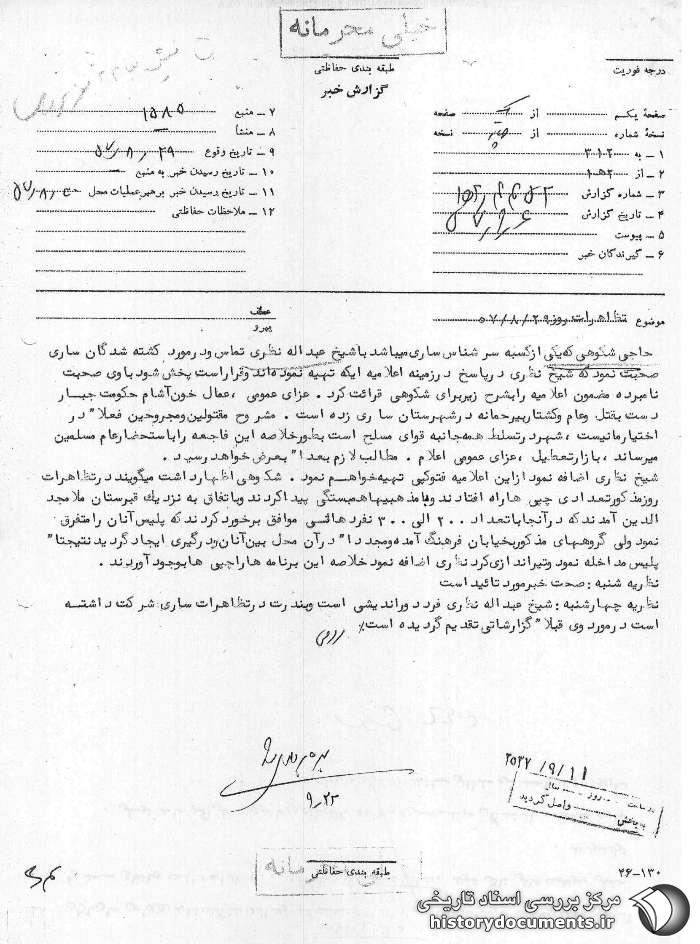 خیلی محرمانه
طبقه بندی حفاظتی
درجه فوریت
گزارش خبر
صفحهٔ یکم از صفحه
نسخهٔ شماره از نسخه
۱ – به ۳۱۲
۲ – از ۱هـ۲
۳ – شماره گزارش
۴ – تاریخ گزارش
۵ – پیوست
۶ – گیرندگان خبر
۷ – منبع ۱۵۸۵
۸ – منشأ
۹ – تاریخ وقوع ۵۷/۸/۲۹
۱۰ – تاریخ رسیدن خبر به منبع
۱۱ – تاریخ رسیدن خبر برهبرعملیات محل ۵۷/۸/۳۰
۱۲ – ملاحظات حفاظتی
موضوع تظاهرات روز ۵۷/۸/۲۹
عطف
پیرو
حاجی شکوهی که یکی ازکسبه سرشناس ساری میباشد باشیخ عبداله نظری تماس ودرمورد کشته شدگان ساری
صحبت نمود که شیخ نظری درپاسخ درزمینه اعلامیه ایکه تهیه نموده اند وقراراست پخش شود باوی صحبت
نامبرده مضمون اعلامیه رابشرح زیربرای شکوهی قرائت کرد . عزای عمومی ، عمال خون آشام حکومت جبار
دست بقتل وعام وکشتاربیرحمانه درشهرستان ساری زده است . مشروح مقتولین ومجروحین فعلا" در
اختیارمانیست ، شهردرتسلط همه جانبه قوای مسلح است بطورخلاصه این فاجعه راباستحضارعام مسلمین
میرساند ، بازارتعطیل ، عزای عمومی اعلام . مطالب لازم بعدا" بعرض خواهد رسید .
شیخ نظری اضافه نمود ازاین اعلامیه فتوکپی تهیه خواهم نمود . شکوهی اظهارداشت میگویند درتظاهرات
روزمذکورتعدادی چپی هاراه افتادند وبامذهبیهاهمبستگی پیداکردند وباتفاق به نزدیك قبرستان ملامجد
الدین آمدند که درآنجاباتعداد ۲۰۰ الی ۳۰۰ نفرهائسی موافق برخورد کردند که پلیس آنان رامتفرق
نمود ولی گروههای مذکوربخیابان فرهنگ آمده ومجددا" درآن محل بین آنان درگیری ایجاد گردید نتیجتا"
پلیس مداخله نمود وتیراندازی کرد نظری اضافه نمود خلاصه این برنامه هاراچپی هابوجود آوردند .
نظریه شنبه : صحت خبرمورد تائید است
نظریه چهارشنبه : شیخ عبداله نظری فرد دوراندیشی است وبندرت درتظاهرات ساری شرکت داشته
است درمورد وی قبلا" گزارشاتی تقدیم گردیده است٪
۹/۲۳
۲۵۳۷/۹/۱۱
درساعت روز سال
بدبخش واصل گردید
خیلی محرمانه
طبقه بندی حفاظتی
۴۶–۱۳۰
مرکز بررسی اسناد تاریخی
historydocuments.ir